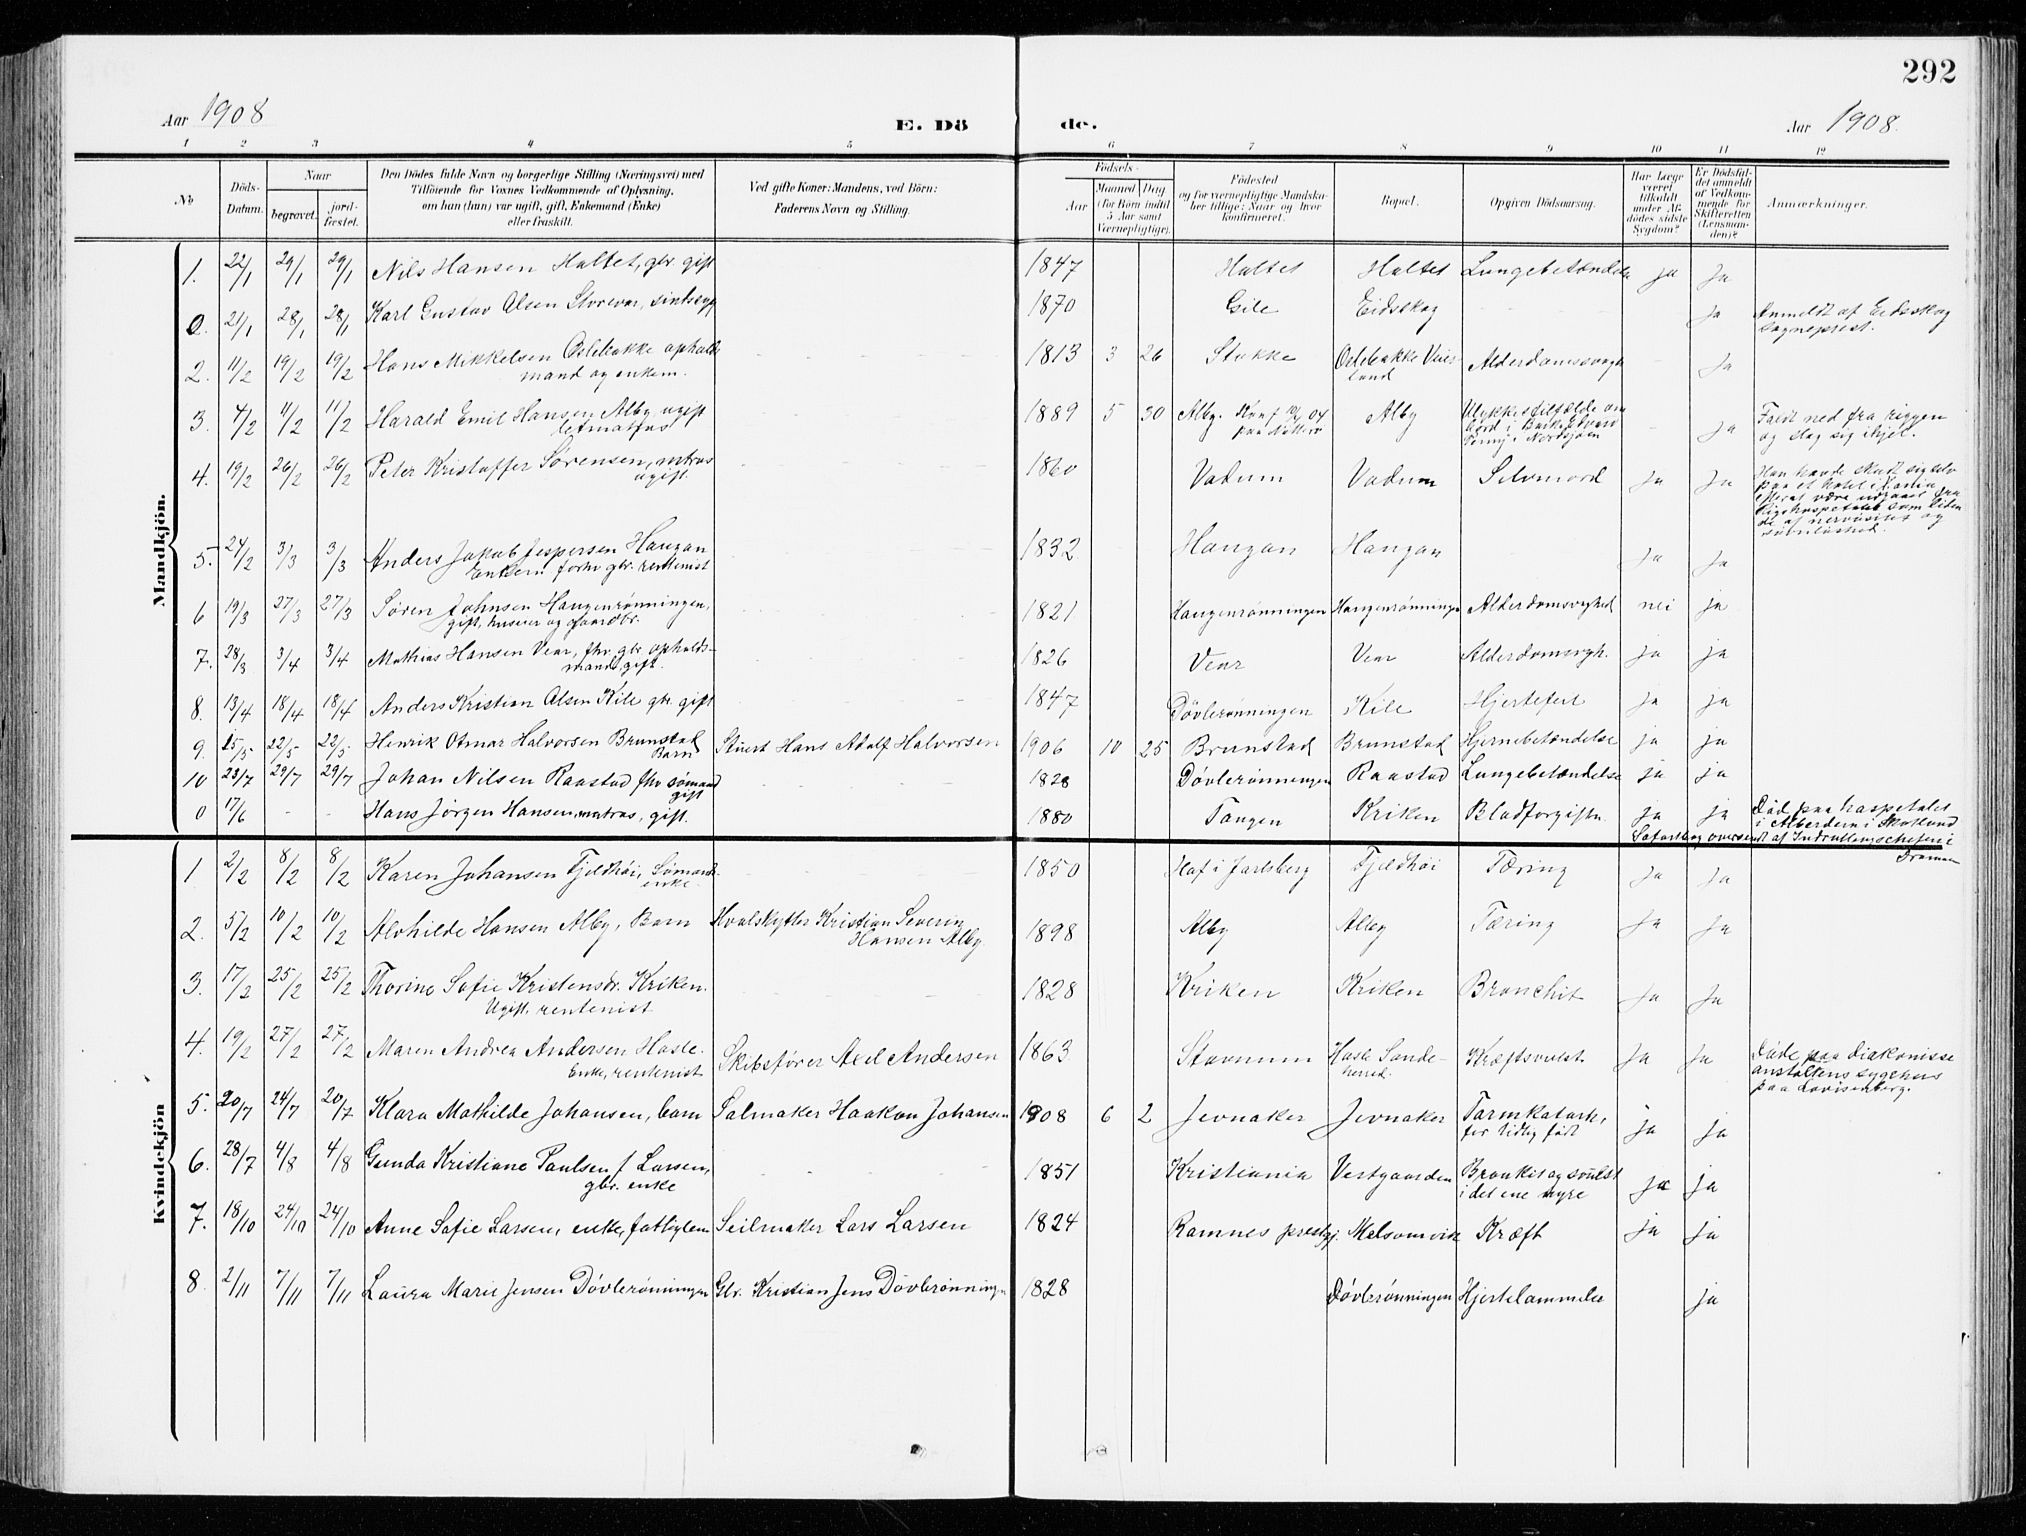 292
Aar 1908
E. Dö
de.
Aar 1908.
1 2 3 4 5 6 7 8 9 10 11 12
No
Döds-Datum.
Naar
begravet.
jord-fæstet.
Den Dödes fulde Navn og borgerlige Stilling (Næringsvei) med
Tilföiende for Voxnes Vedkommende af Oplysning,
om han (hun) var ugift, gift, Enkemand (Enke)
eller fraskilt.
Ved gifte Koner: Mandens, ved Börn:
Faderens Navn og Stilling.
Födsels-
Aar
Maaned Dag
(for Börn indtil
5 Aar samt
Værnepligtige).
Födested
og for værnepligtige Mandska-
ber tillige: Naar og hvor
konfirmeret.
Bopæl.
Opgiven Dödsaarsag.
Har Læge
været
tilkaldt
under Af-
dödes sidste
Sygdom?
Er Dödsfal-
det anmeldt
af Vedkom-
mende for
Skifteretten
(Lensman-
den)?
Anmærkninger.
Mandkjön.
1. 22/1 29/1 29/1 Nils Hansen Haltet, gbr. gift 1847 Haltet Haltet Lungebetændelse ja Ja
0. 21/1 28/1 28/1 Karl Gustav Olsen Storevar, sindssyg 1870 Gile Eidskog Ja Anmeldt af Eidskog
sogneprest.
2. 11/2 19/2 19/2 Hans Mikkelsen Oslebakke opholds
mand og enkem. 1813 3 26 Stokke Oslebakke Veier-
land Alderdomssvagh Ja
3. 4/2 11/2 11/2 Harald Emil Hansen Alby ugift
letmatros 1889 5 30 Alby. Konf 04
paa Nøtterø Alby Ulykkestilfælde om
bord i Bark
i Nordsjøen Ja Faldt ned fra riggen
og slog sig ihjel.
4. 19/2 26/2 26/2 Peter Kristoffer Sørensen, matros
ugift. 1860 Vadum Vadum Selvmord Ja Ja Han havde skudt sig selv
paa et hotel i
efterat være udgaaet fra
Rigshospetalet som liden
de af nervøsitet og
søvnløshed.
5. 24/2 3/3 3/3 Anders Jakob Jespersen Haugan
Enkem. forhv gbr. rentenist 1832 Haugan Haugan Ja Ja
6 19/3 27/3 27/3 Søren Johnsen Haugenrønningen,
gift, huseier og gaardbr. 1821 Haugenrønningen Haugenrønningen Alderdomsvghed nei ja
7. 28/3 3/4 3/4 Mathias Hansen Vear, fhv. gbr opholds-
mand, gift. 1826 Vear Vear Alderdomsvgh. ja ja
8. 13/4 18/4 18/4 Anders Kristian Olsen Kile gbr gift 1847 Døvlerønningen Kile Hjertefeil ja ja
9. 15/5 22/5 22/5 Henrik Otmar Halvorsen Brunstad
Barn Stuert Hans Adolf Halvorsen 1906 10 25 Brunstad Brunstad Hjernebetændelse ja ja
10 23/7 29/7 29/7 Johan Nilsen Raastad fhv sømand
gift 1828 Døvlerønningen Raastad Lungebetændelse ja ja
0 17/6 - - Hans Jørgen Hansen, matros, gift. 1880 Tangen Kriken Blodforgiftn. ja ja Død paa hospetalet
i Alberdeen i Skotland
oversendt af Indrulleringschefen i
Drammen
Kvindekjön
1 2/2 8/2 8/2 Karen Johansen Fjeldhøi, Sømands-
enke 1850 Hof i Jarlsberg Fjeldhøi Tæring Ja Ja
2. 5/2 10/2 10/2 Alvhilde Hansen Alby, Barn Hvalskytter Kristian Severin
Hansen Alby. 1898 Alby Alby Tæring Ja Ja
3. 17/2 25/2 25/2 Thorine Sofie Kristensdr. Kriken.
Ugift, rentenist 1828 Kriken Kriken Bronchit Ja Ja
4. 19/2 27/2 27/2 Maren Andrea Andersen Hasle.
Enke, rentenist Skibsfører Axel Andersen 1863 Stavnum Hasle Sande-
herred. Kræftsvulst Ja Ja Døde paa diakonisse
anstaltens sygehus
paa Lovisenberg.
5. 20/7 24/7 20/7 Klara Mathilde Johansen, barn Salmaker Haakon Johansen 1908 6 2 Jevnaker Jevnaker Tarmkatarh,
for tidlig født ja Ja
6. 28/7 4/8 4/8 Gunda Kristiane Paulsen f Larsen,
gbr. enke 1851 Kristiania Vestgaarden Bronkit og svulst
i det ene nyre ja ja
7. 18/10 24/10 24/10 Anne Sofie Larsen, enke, fattiglem Seilmaker Lars Larsen 1824 Ramnes prestgj. Melsomvik Kræft ja ja
8. 2/11 7/11 7/11 Laura Marie Jensen Døvlerønningen Gbr. Kristian Jens Døvlerønningen 1828 Døvlerønningen Hjertelammelse ja